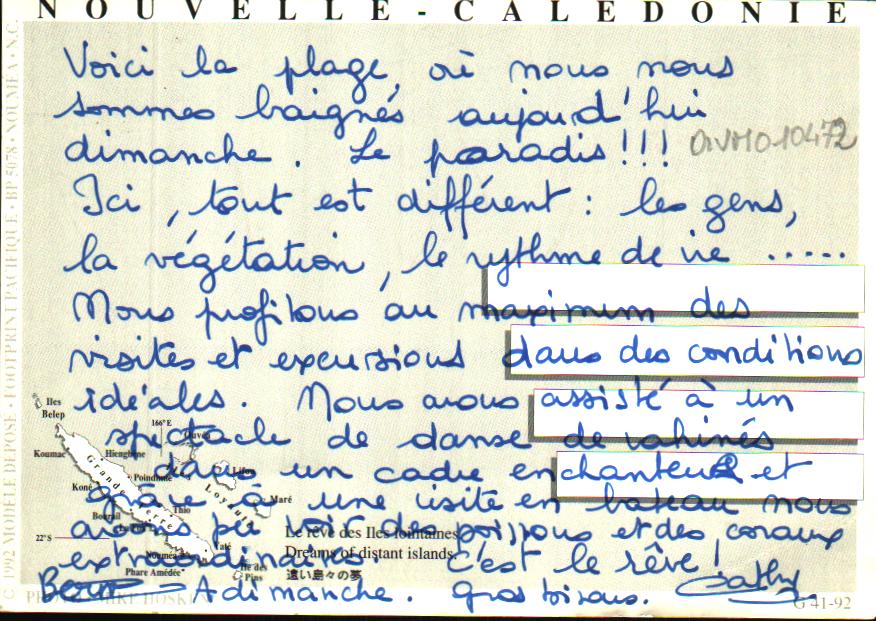 NOUVELLE-CALEDONIE
Voici la plage, où nous nous
sommes baignés aujourd'hui
dimanche. Le paradis!!!
Ici, tout est différent : les gens,
la végétation, le rythme de vie .....
Nous profitons au maximum des
visites et excursions dans des conditions
idéales. Nous avons assisté à un
spectacle de danse de vahinés
dans un cadre enchanteur et
grâce à une visite en bateau nous
avons pu voir des poissons et des coraux
extraordinaires. c'est le rêve!
A dimanche. gros bisous. Cathy
Iles
Belep
166° E
Koumac
Hienghène
Koné
Poindimié
Grande Terre
Maré
Thio
Bourail
22° S
Nouméa
Yaté
Phare Amédée
Ile des
Pins
Le rêve des Iles lointaines
Dreams of distant islands.
遠い島々の夢
G 41-92
© 1992 MODELE DEPOSE • FOOTPRINT PACIFIQUE • BP 5078 • NOUMÉA • N.C.